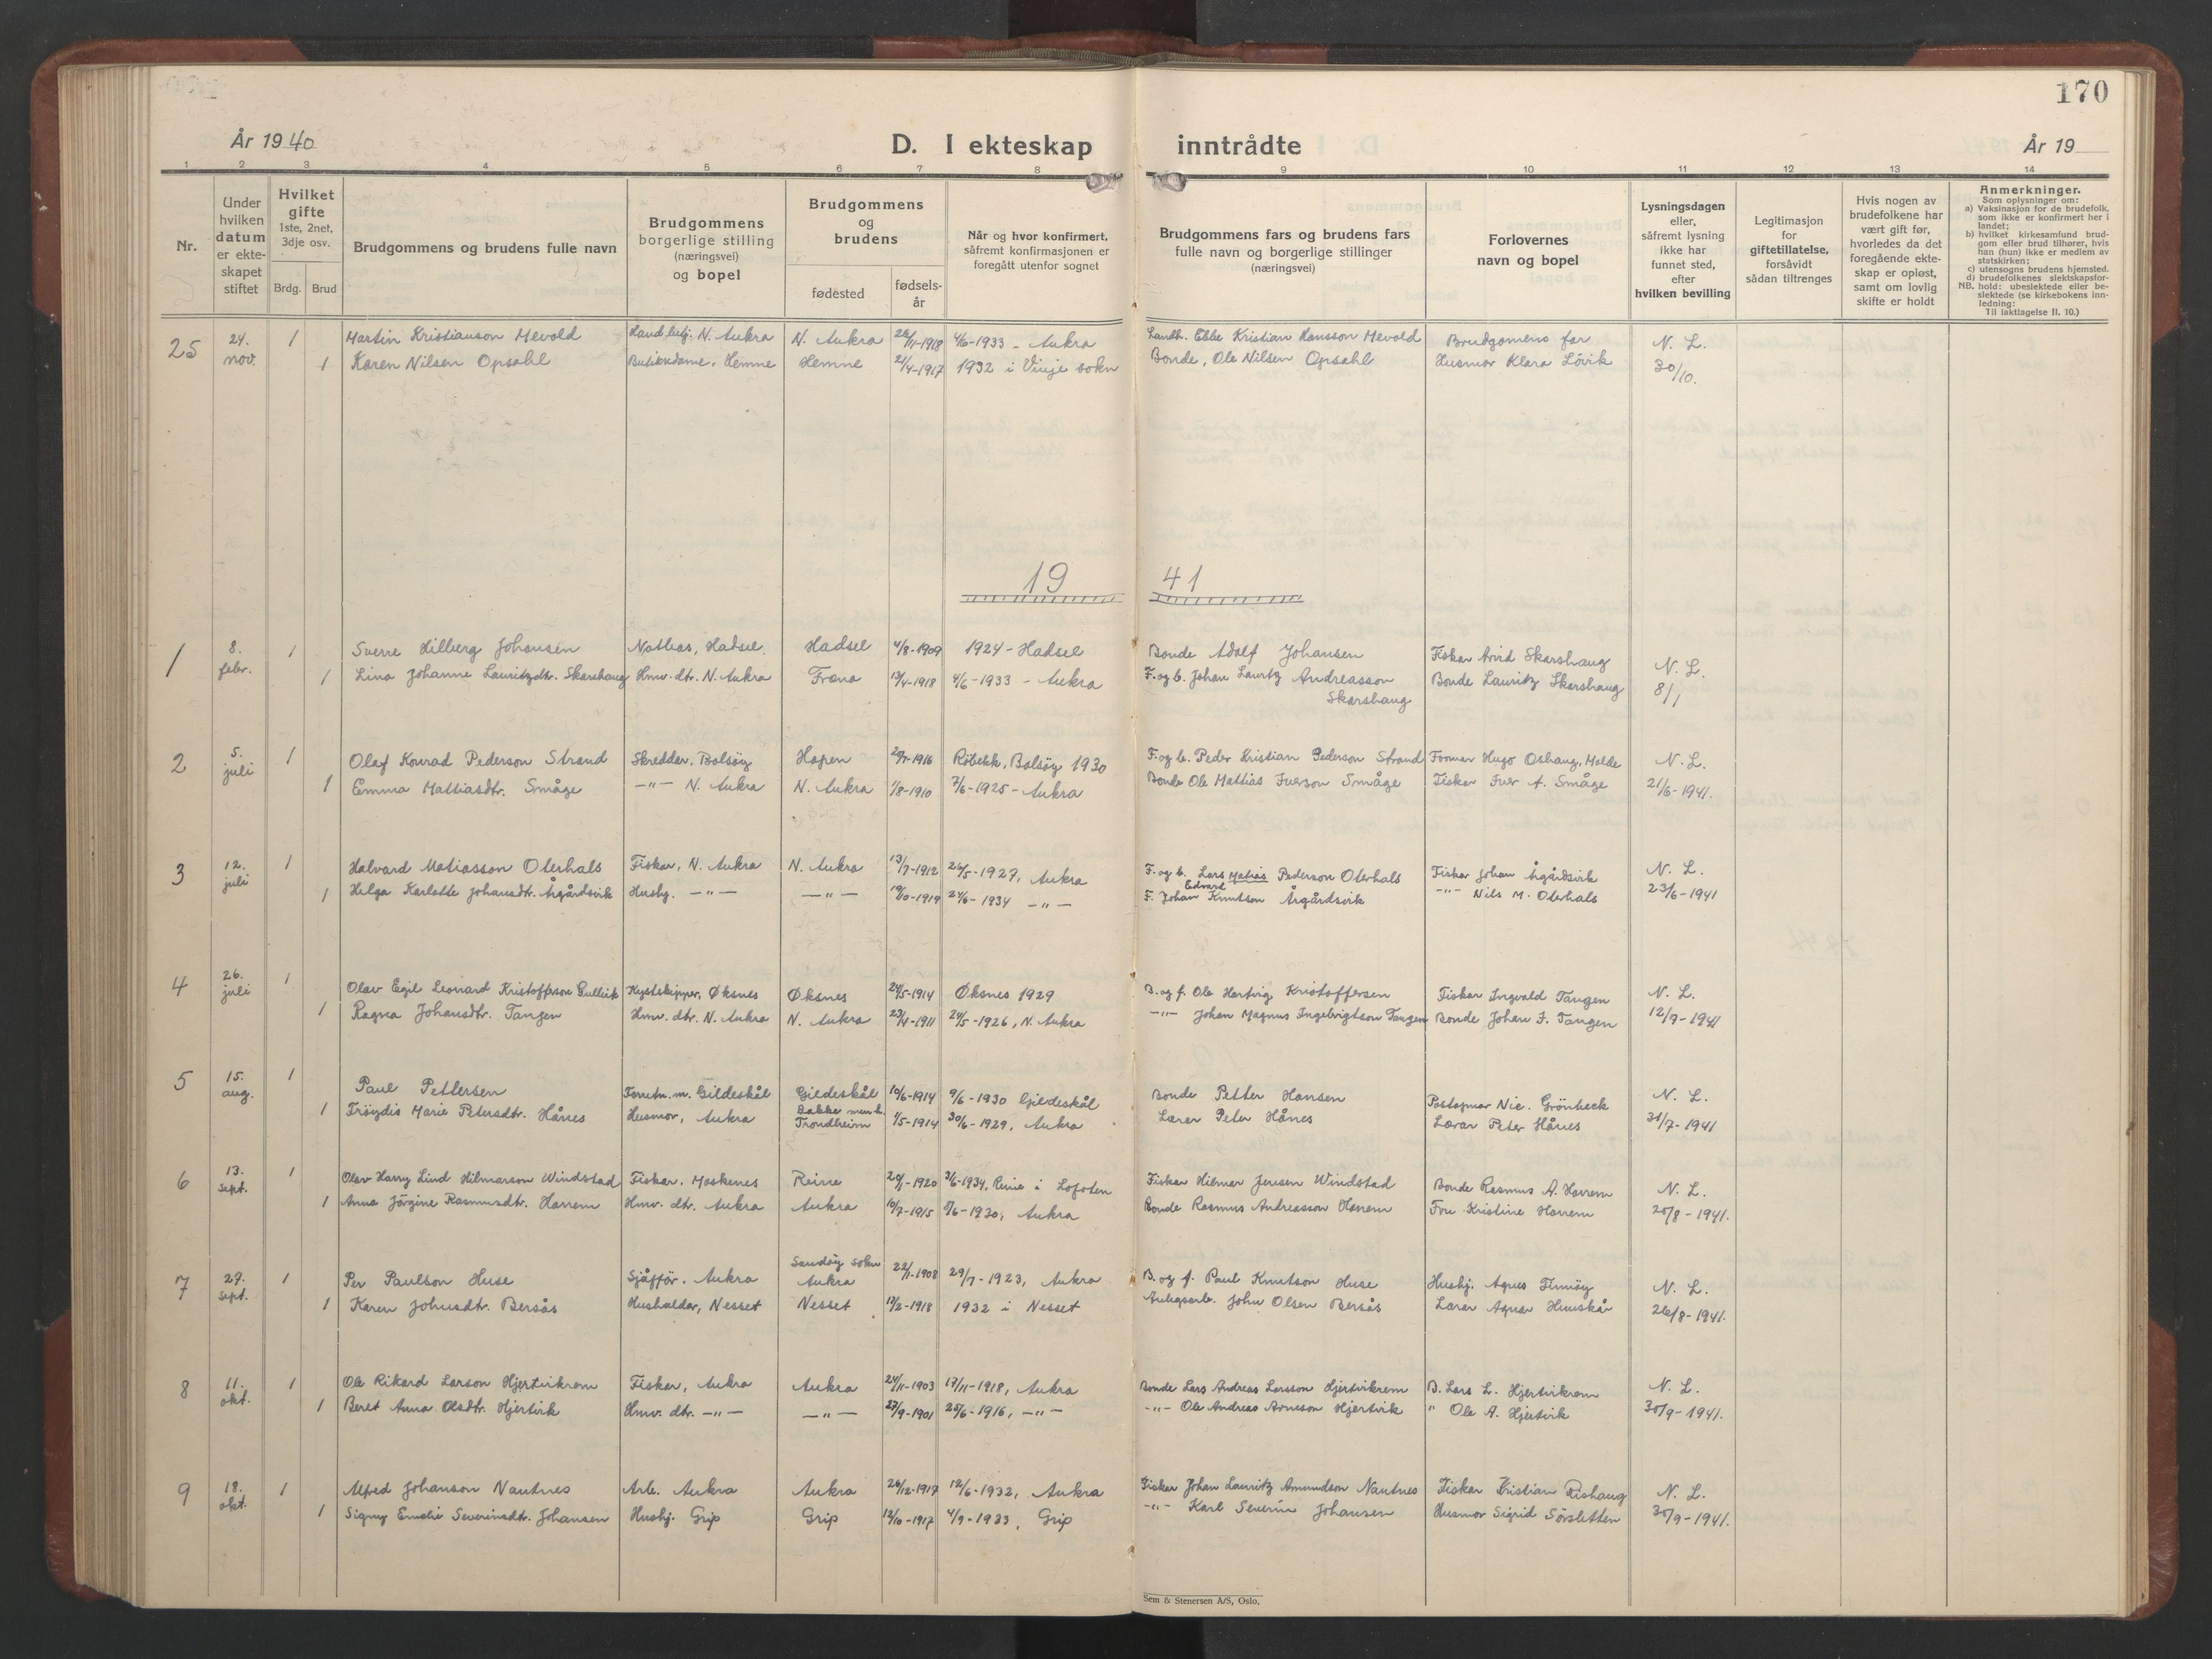 170
År 1940
D. I ekteskap inntrådte
År 19
1 2 3 4 5 6 7 8 9 10 11 12 13 14
Nr.
Under hvilken datum er ekteskapet stiftet
Hvilket gifte 1ste, 2net, 3dje osv.
Brdg. Brud
Brudgommens og brudens fulle navn
Brudgommens borgerlige stilling (næringsvei) og bopel
Brudgommens og brudens
fødested
fødsels-år
Når og hvor konfirmert, såfremt konfirmasjonen er foregått utenfor sognet
Brudgommens fars og brudens fars fulle navn og borgerlige stillinger (næringsvei)
Forlovernes navn og bopel
Lysningsdagen eller, såfremt lysning ikke har funnet sted, efter hvilken bevilling
Legitimasjon for giftetillatelse, forsåvidt sådan tiltrenges
Hvis nogen av brudefolkene har vært gift før, hvorledes da det foregående ekteskap er opløst, samt om lovlig skifte er holdt
Anmerkninger.
Som oplysninger om:
a) Vaksinasjon for de brudefolk, som ikke er konfirmert her i landet;
b) hvilket kirkesamfund brudgom eller brud tilhører, hvis han (hun) ikke er medlem av statskirken;
c) utensogns brudens hjemsted.
d) brudefolkenes slektskapsforhold: ubeslektede eller beslektede (se kirkebokens innledning:
NB.
Til iakttagelse II. 10.)
25 24. nov. 1 Martin Kristianson Mevold N. Aukra N. Aukra 26/11-1918 4/6-1933 - Aukra Kristian Hansson Mevold Brudgomens far N. L.
1 Karen Nilsen Opsahl Hemne Hemne 21/4-1917 1932 i Vinje sokn Bonde, Ole Nilsen Opsahl Husmor Klara Lövik 30/10.
19 41
1 8. febr. 1 Sverre Hilberg Johansen Notbas, Hadsel. Hadsel 4/8-1909 1924 - Hadsel Bonde Adolf Johansen Fiskar Arvid Skarshaug N. L.
1 Lina Johanne Lauritzdtr. Skarshaug Hmv. dtr. N. Aukra Fræna 13/4-1918 4/6-1933 - Aukra F. og b. Johan Lauritz Andreasson Skarshaug Bonde Lauritz Skarshaug 8/1
2 5. juli 1 Olaf Konrad Pederson Strand Skredder, Bolsøy Hopen 1916 Røbekk, Bolsøy 1930 F. og b. Peder Kristian Pederson Strand Forman Hugo Oshaug, Molde N. L.
1 Emma Mattiasdtr. Småge -"- N. Aukra N. Aukra 1/8-1910 7/6-1925 - Aukra Bonde Ole Mattias Iverson Småge Fiskar Iver A. Småge 21/6-1941.
3 12. juli 1 Halvard Matiasson Oterhals Fiskar, N. Aukra N. Aukra 13/7-1912 26/5-1927, Aukra F. og b. Lars Matias Pederson Oterhals Fiskar Johan Årgårdsvik N. L.
1 Helga Karlotte Johansdtr. Årgårdsvik Hushj. -"- -"- 19/10-1919 24/6-1934 -"- F. Johan Edvard Knutson Årgårdsvik -"- Nils M. Oterhals 23/6-1941
4 26. juli 1 Olav Egil Leonard Kristofferson Gullvik Kystskipper, Øksnes Øksnes 24/5-1914 Øksnes 1929 B. og f. Ole Hartvig Kristoffersen Fiskar Ingvald Tangen N. L.
1 Ragna Johansdtr. Tangen Hmv. dtr. N. Aukra N. Aukra 23/4-1911 24/5-1926, N. Aukra -"- Johan Magnus Ingebrigtson Tangen Bonde Johan I. Tangen 12/7-1941
5 15. aug. 1 Paul Pettersen Forretn. m. Gildeskål Gildeskål 10/6-1914 9/6-1930 Gjeldeskål Bonde Petter Hansen Postopnar Nic. Grönbeck N. L.
1 Fröydis Marie Petersdtr. Hånes Husmor, Aukra Bakke menh. Trondheim 1/5-1914 30/6-1929, Aukra Lærar Peter Hånes Lærar Peter Hånes 31/7-1941
6 13. sept. 1 Olav Harry Lind Hilmarson Windstad Fiskar. Moskenes Reine 20/1-1920 3/6-1934, Reine i Lofoten Fiskar Hilmar Jensen Windstad Bonde Rasmus A. Harrem N. L.
1 Anna Jörgine Rasmusdtr. Harrem Hmv. dtr. Aukra Aukra 10/7-1915 8/6-1930, Aukra Bonde Rasmus Andreasson Harrem Fru Kristine Harrem 20/8-1941.
7 27. sept. 1 Per Paulson Huse Sjåfför. Aukra Sandøy sokn Aukra 22/1-1908 29/7-1923, Aukra B. og f. Paul Knutson Huse Hushj. Agnes Finnøy N. L.
1 Karen Johnsdtr. Bersås Hushaldar, Nesset Nesset 17/2-1918 1932 i Nesset Anlegsarb. John Olsen Bersås Lærar Agnar Huuskår 26/8-1941.
8 11. okt. 1 Ole Rikard Larson Hjertvikrem Fiskar, Aukra Aukra 24/11-1903 17/11-1918, Aukra Bonde Lars Andreas Larsson Hjertvikrem B. Lars L. Hjertvikrem N. L.
1 Beret Anna Olsdtr. Hjertvik Hmv. dtr. -"- -"- 27/9-1901 25/6-1916, -"- -"- Ole Andreas Arneson Hjertvik " Ole A. Hjertvik 30/9-1941.
9 18. okt. 1 Alfred Johanson Nautnes Arb. Aukra Aukra 26/12-1917 19/6-1932, Aukra Fisker Johan Lauritz Amundson Nautnes Fiskar Kristian Rishaug N. L.
1 Signy Emelie Severinsdtr. Johansen Hushj. Grip Grip 12/10-1917 4/9-1933, Grip -"- Karl Severin Johansen Husmor Sigrid Sörsletten 30/9-1941.
Sem & Stenersen A/S, Oslo.